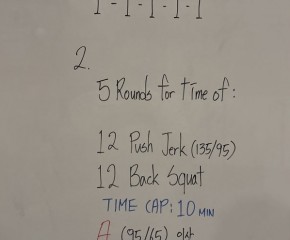 1-1-1-1-1
2.
5 Rounds for Time of:
12 Push Jerk (135/95)
12 Back Squat
TIME CAP: 10 MIN
A (95/65) 이상